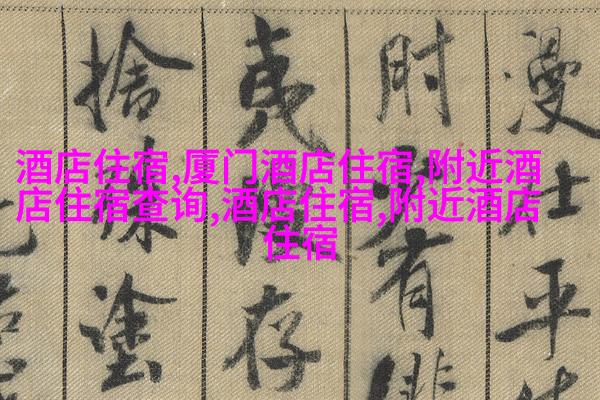 酒店住宿,厦门酒店住宿,附近酒
店住宿查询,酒店住宿,附近酒店
住宿
漫仕平
肘少有俳
夷漫存
捨殊塗